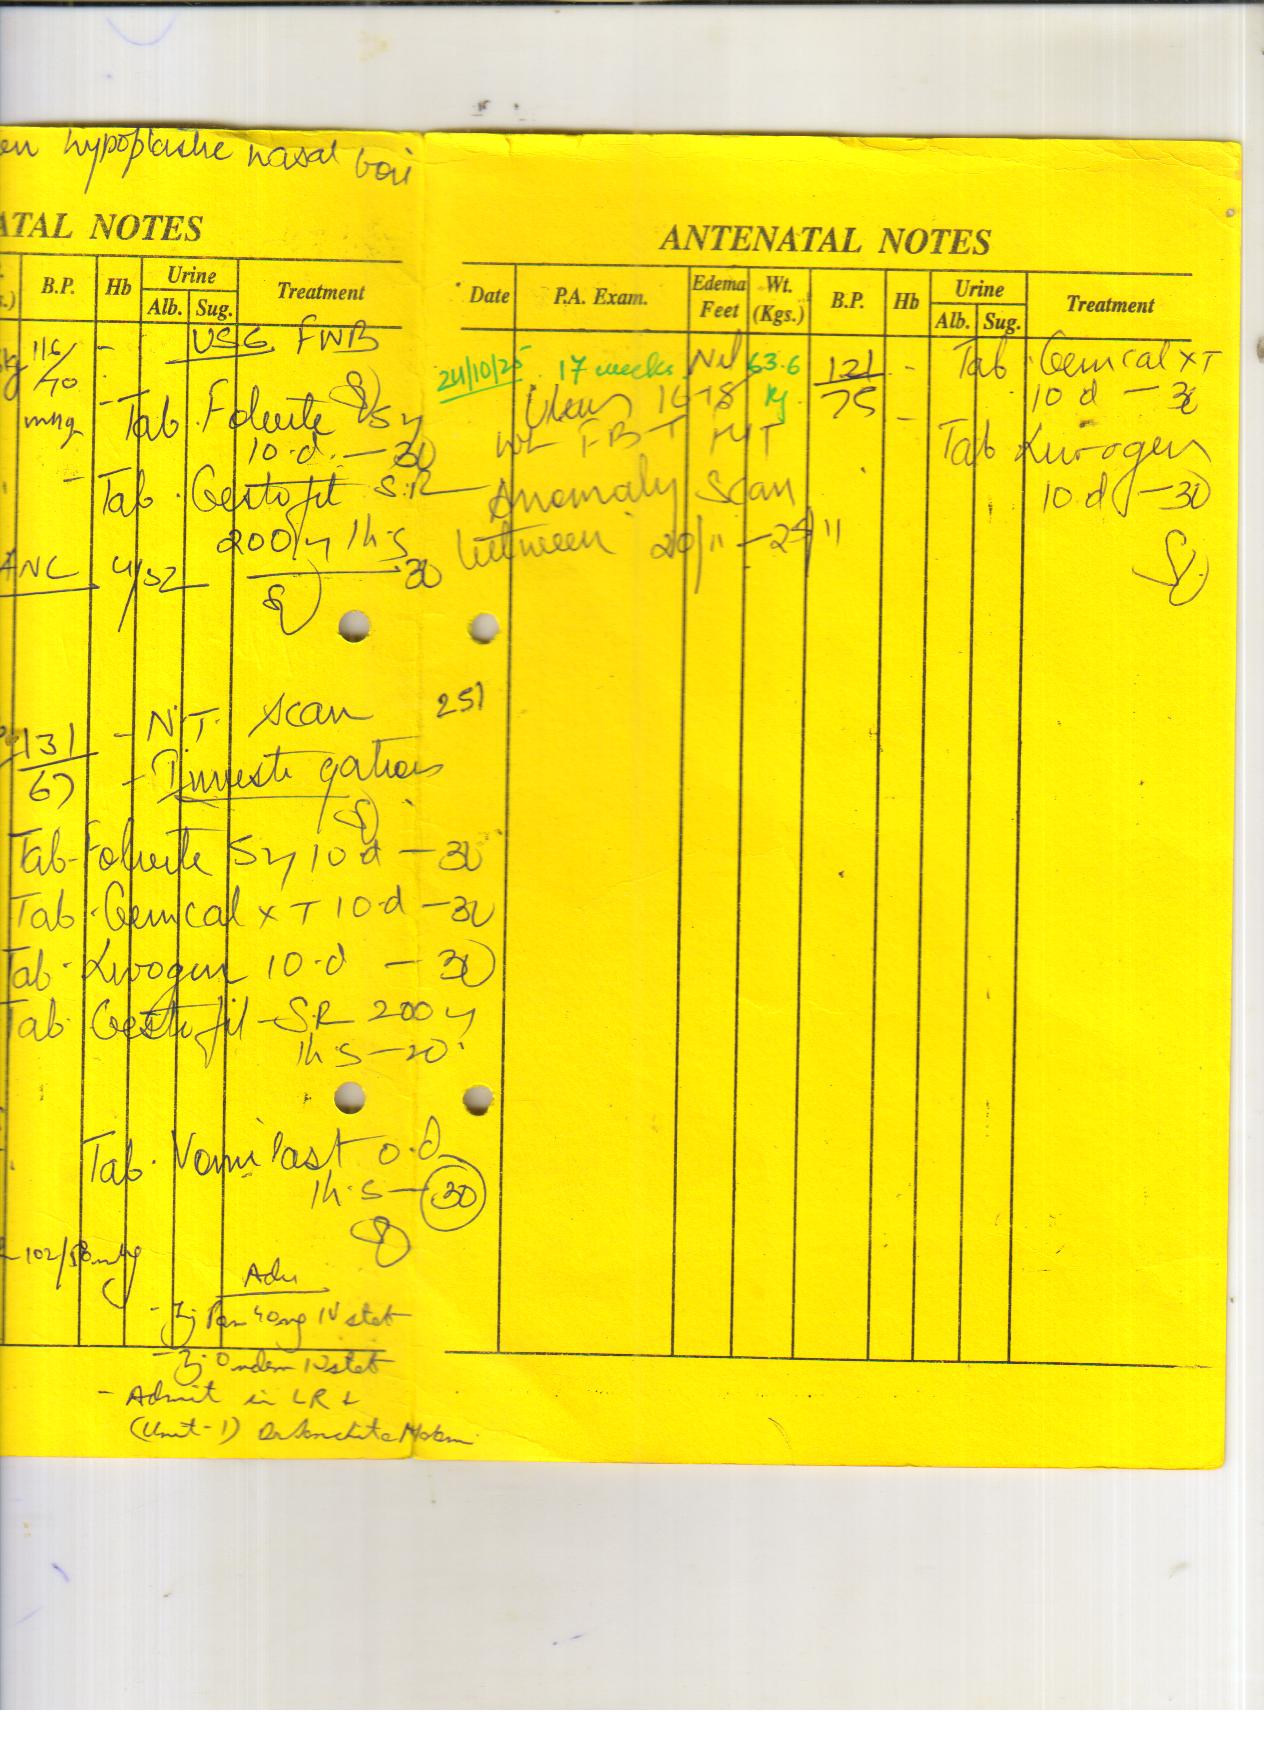 hypoplastic nasal bone
ATAL NOTES
B.P. Hb Urine Treatment
Alb. Sug.
116/70 - USG FWB
mmHg - Tab. Folvite 5mg
10.d. — 30
- Tab. Gestofit SR
200mg 1h.s
30
ANC 4/52
- N.T. Scan 251
131/67 - Investigations
Tab. Folvite 5mg 10d — 30
Tab. Gemcal XT 10.d — 30
Tab. Livogen 10.d — 30
Tab. Gestofit-SR 200mg
1h.s — 20
Tab. Vomilast o.d
1h.s — 30
102/58 mmHg
Adv
- Inj Pan 40mg IV stat
- Inj Ondem IV stat
- Admit in LR
(Unit-1) Dr
ANTENATAL NOTES
Date P.A. Exam. Edema Feet Wt. (Kgs.) B.P. Hb Urine Treatment
Alb. Sug.
24/10/25 17 weeks Nil 63.6 kg 121/75 - Tab. Gemcal XT
10.d — 30
Uterus 16-18
- Tab Livogen
10.d — 30
- Anomaly Scan
between 20/11 — 25/11